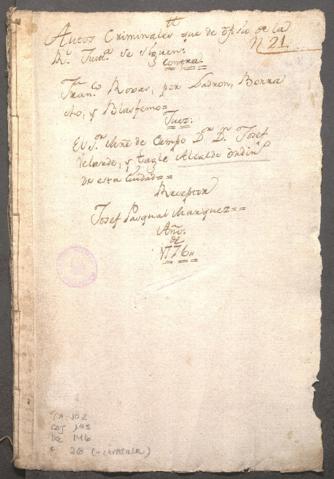 Autos Criminales que de oficio de la
Rl. Justa. se siguen
N 21.
contra
Franco. Rosas, por Ladron, Borra
cho, y Blasfemo=
Juez.
El Sr. Mre. de Campo Dn. Dn. Josef
de Tagle Alcalde Ordino.
de esta Ciudad=
Receptor
Josef Pasqual Marquez==
Año
de
1776,,
TA-JO2
146